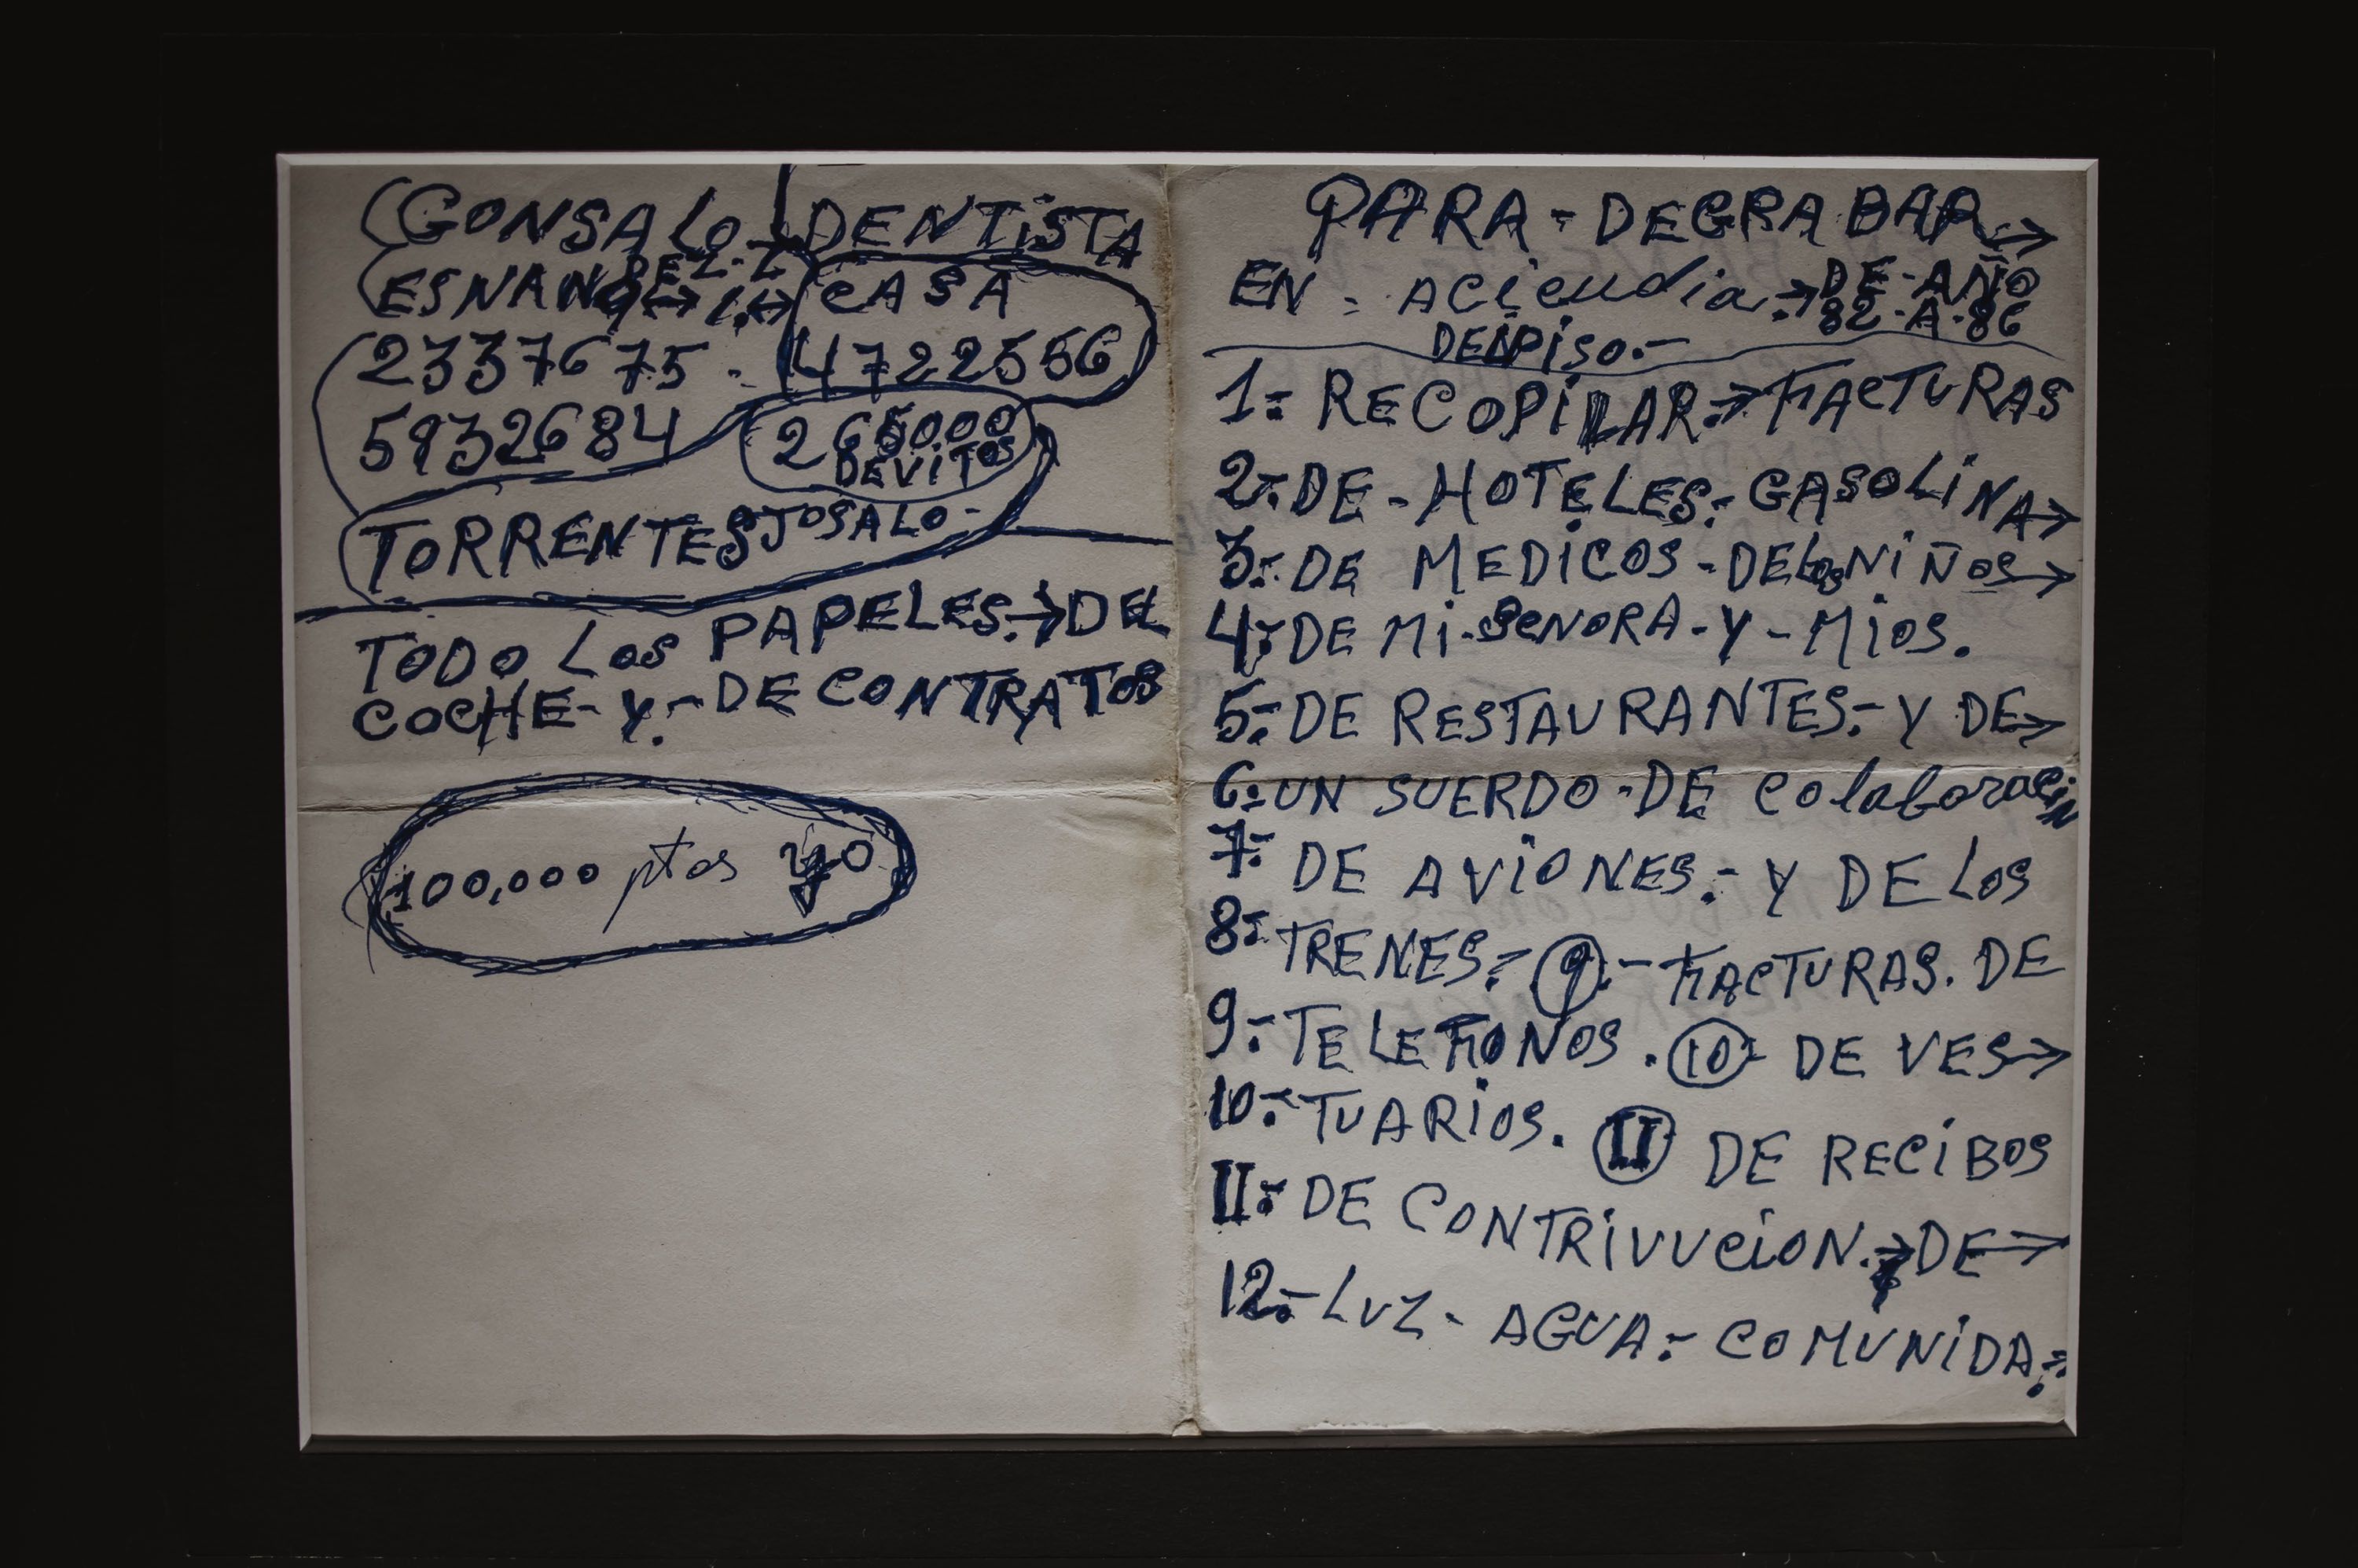 GONSALO → DENTISTA
ESNANDEZ-L
CASA
2337675 . 4722556
5932684
265000
DEVITOS
TORRENTES JOSALO-
TODO LOS PAPELES.→DEL
COCHE- Y.- DE CONTRATOS
100,000 ptas yo
PARA - DEGRABAR→
EN - ACiendia.→ DE-AÑO
82-A-86
DEN PISO.-
1= RECOPILAR.→ FACTURAS
2:- DE - HOTELES:- GASOLINA→
3:- DE MEDICOS - DE LOS NIÑOS→
4:- DE Mi - SeNORA - Y - MIOS.
5:- DE RESTAURANTES:- Y DE→
6:- UN SUERDO - DE colaboracin
7:- DE AVIONES:- Y DE LOS
8:- TRENES:- 9:- FACTURAS. DE
9:- TELEFONOS. 10- DE VES→
10:- TUARIOS. II DE RECIBOS
II:- DE CONTRIVUCION.→ Y DE→
12:- LUZ- AGUA:- COMUNIDA:-